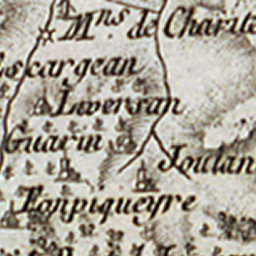 Mns. de Charite
Escargean
Lwenran
Guarin
Joulan
Fonpiqueyre